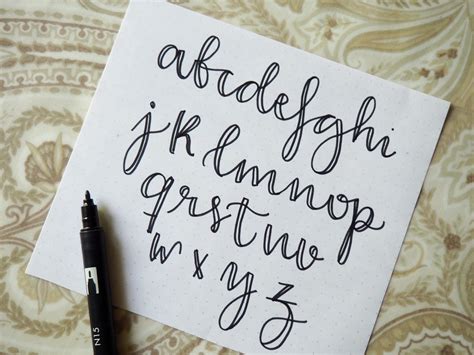 abcdefghi
jklmnop
qrstuv
wxyz
N15